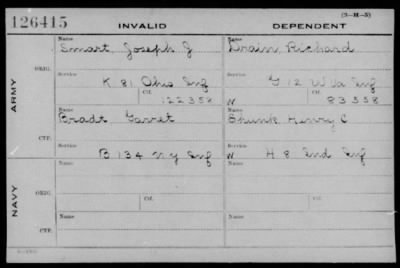 126415 INVALID DEPENDENT (3-M-5)
Name Name
Smart, Joseph J Drain, Richard
ORIG.
Service Service
K 81 Ohio Inf G 12 W Va Inf
Ctf. Ctf.
122358 W 83558
ARMY
Name Name
Bradt Garret Shunk Henry C
CTF.
Service Service
B 134 N Y Inf W H 8 Ind Inf
Name Name
ORIG.
Service Ctf. Service Ctf.
NAVY
Name Name
CTF.